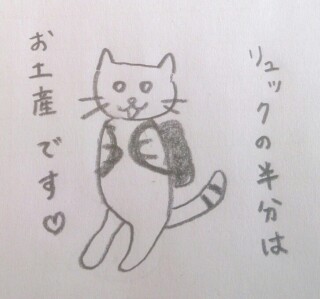 リュックの半分は
お土産です♡